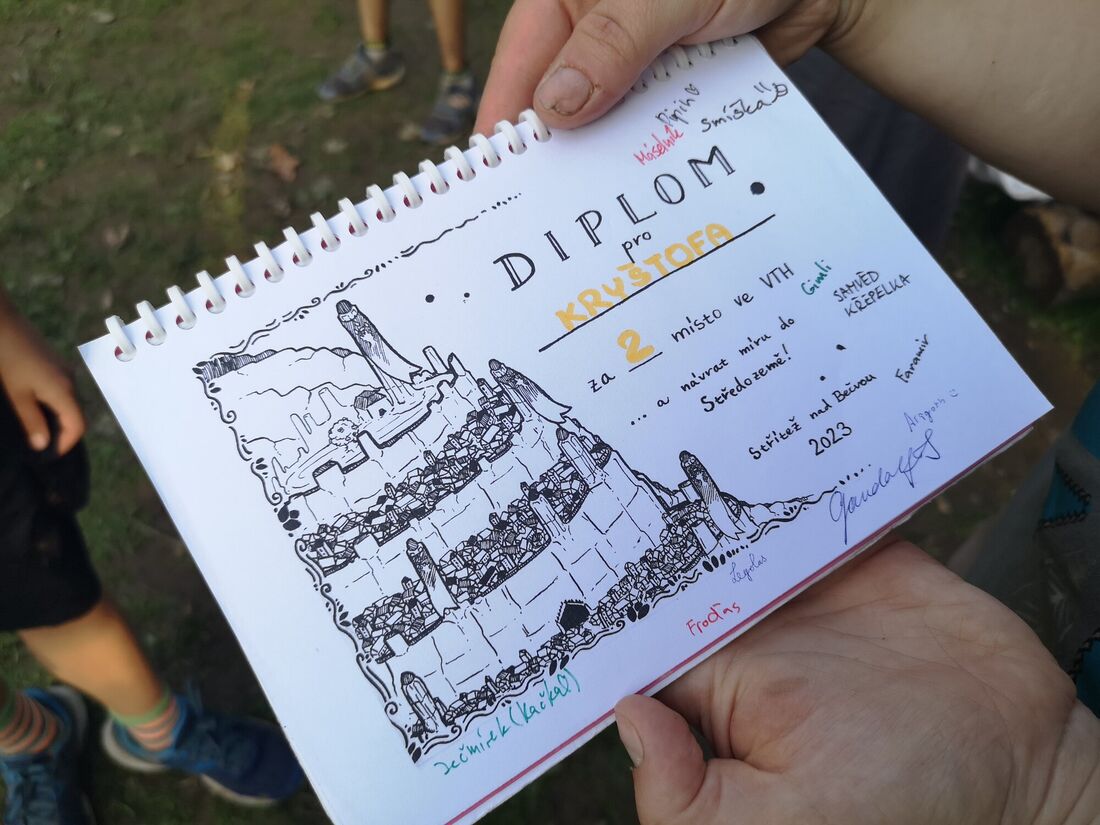 Pipin
Máselník
Smíška
DIPLOM
pro
KRYŠTOFA
za 2 místo ve VTH
... a návrat míru do
Středozemě!
Gimli
SAMVĚD
KŘEPELKA
Střítež nad Bečvou
2023
Faramir
Aragorn
Gandalf
Legolas
Froďas
Ječmínek (Kačka)